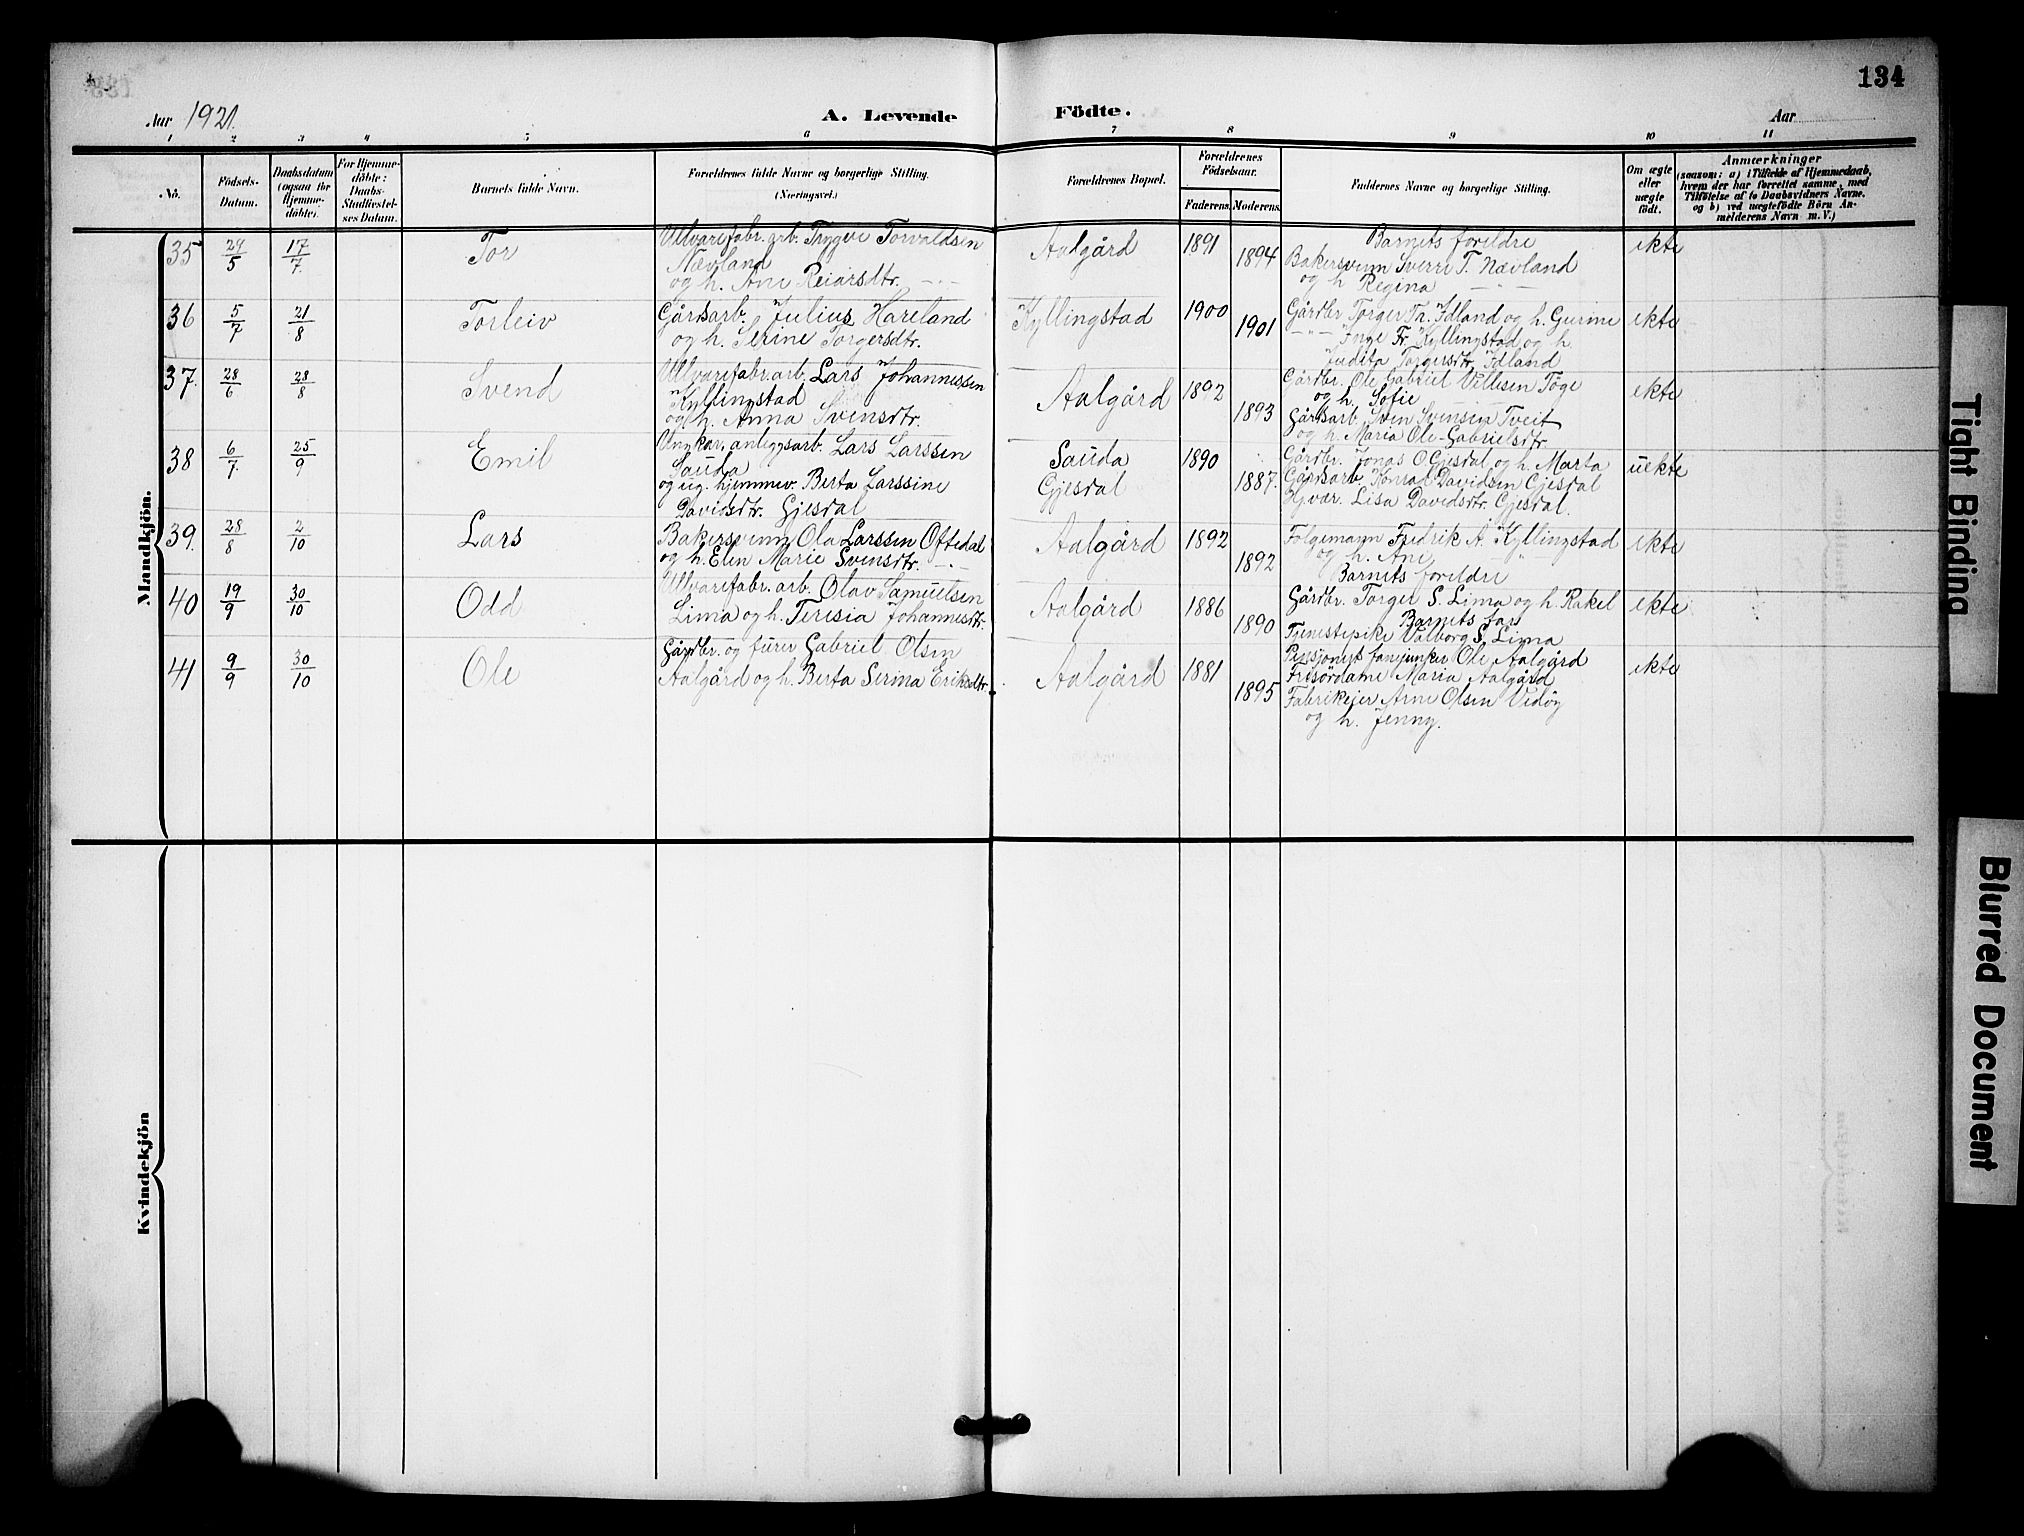 134
Aar 1921.
A. Levende Födte.
Aar
1 2 3 4 5 6 7 8 9 10 11
No.
Födsels-Datum.
Daabsdatum (ogsaa for Hjemme-döbte).
For Hjemme-döbte: Daabs-Stadfæstel-ses Datum.
Barnets fulde Navn.
Forældrenes fulde Navne og borgerlige Stilling. (Næringsvei.)
Forældrenes Bopæl.
Forældrenes Födselsaar.
Faderens. Moderens.
Faddernes Navne og borgerlige Stilling.
Om ægte eller uægte födt.
Anmærkninger
(saasom: a) i Tilfælde af Hjemmedaab, hvem der har forrettet samme, med Tilföielse af to Daabsvidners Navne, og b) ved uægtefödte Börn An-melderens Navn m. V.)
Mandkjön.
35 29/5 17/7 Tor
Ullvarefabr.arb. Trygve Torvaldsen
Nævland
og h. Ane Reiarsdtr. -"-
Aalgård 1891 1894
Barnets foreldre
Bakersvenn Sverre T. Nævland
og h. Regina -"-
ekte
36 5/7 21/8 Torleiv
Gårdsarb. Julius Hareland
og h. Serine Torgersdtr.
Kyllingstad 1900 1901
Gårdbr Torger Th. Idland og h. Gurine
-"- Inge Fr. Kyllingstad og h.
Judita Torgersdtr. Idland
ekte
37. 28/6 28/8 Svend
Ullvarefabr.arb. Lars Johannessen
Kyllingstad
og h. Anna Svensdtr.
Aalgård 1892 1893
Gårdbr. Ole Gabriel Villesen Töge
og h. Sofie
Gårdsarb. Sven Svensen Tveit
og h. Maria Ole-Gabrielsdtr.
ekte
38 6/7. 25/9 Emil
Ungkar, anleggsarb. Lars Larssen
Sauda
og ug. hjemmev. Berta Larssine
Davidsdtr. Gjesdal
Sauda
Gjesdal
1890 1887.
Gårdbr. Jonas O Gjesdal og h. Marta
Gårdsarb. Konrad Davidsen Gjesdal
Hj.vær. Lisa Davidsdtr. Gjesdal.
uekte
39. 28/8 2/10 Lars
Bakersvenn Ola Larssen Oftedal
og h. Elen Marie Svensdtr. -"-
Aalgård 1892 1892
Folgemann Fredrik A. Kyllingstad
og h. Ane "
Barnets foreldre
ekte
40 19/9 30/10 Odd
Ullvarefabr. arb. Olav Samuelsen
Lima og h. Teresia Johannesdtr.
Aalgård 1886 1890
Gårdbr. Torger S. Lima og h. Rakel
Barnets far
Tjenestepike Valborg S. Lima
ekte
41 9/9 30/10 Ole
Gårdbr. og furer Gabriel Olsen
Aalgård og h. Berta Serina Eriksdtr.
Aalgård 1881 1895
Pensjonert fanejunker Ole Aalgård
Frisördame Maria Aalgård
Fabrikeier Arne Olsen Vedöy
og h. Jenny.
ekte
Kvindekjön
Tight Binding
Blurred Document